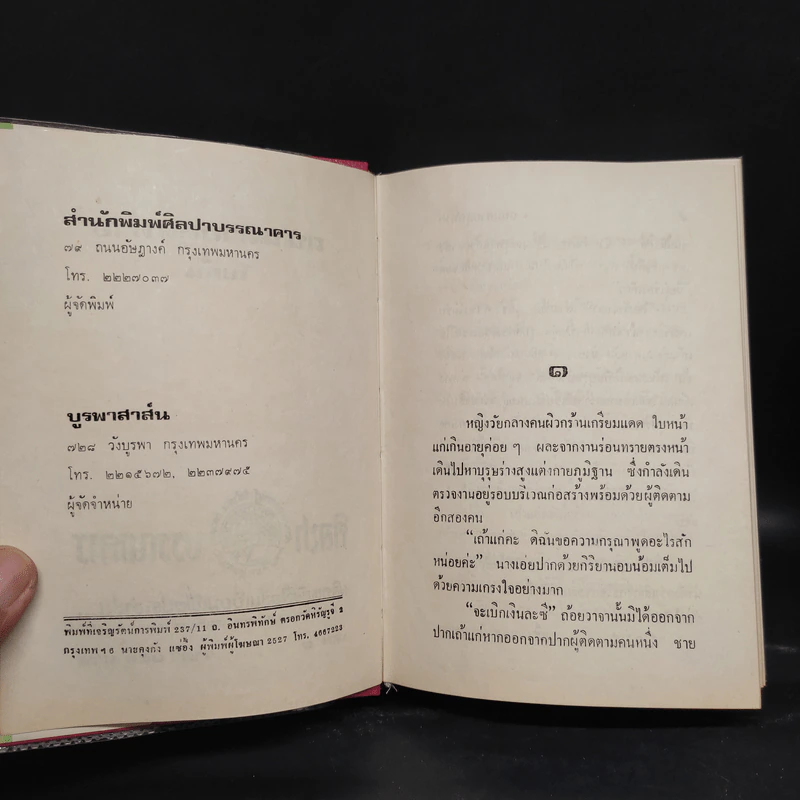 สำนักพิมพ์ศิลปาบรรณาคาร
๗๙ ถนนอัษฎางค์ กรุงเทพมหานคร
โทร. ๒๒๒๗๐๓๗
ผู้จัดพิมพ์
บูรพาสาส์น
๗๒๘ วังบูรพา กรุงเทพมหานคร
โทร. ๒๒๑๕๖๗๒, ๒๒๓๗๙๗๕
ผู้จัดจำหน่าย
พิมพ์ที่เจริญรัตน์การพิมพ์ 237/11 ถ. อินทรพิทักษ์ ตรอกวัดหิรัญรูจี 2
กรุงเทพฯ 6 นายคุงกัง แซ่อึ้ง ผู้พิมพ์ผู้โฆษณา 2527 โทร. 4667223
๑
หญิงวัยกลางคนผิวกร้านเกรียมแดด ใบหน้า
แก่เกินอายุค่อย ๆ ผละจากงานร่อนทรายตรงหน้า
เดินไปหาบุรุษร่างสูงแต่งกายภูมิฐาน ซึ่งกำลังเดิน
ตรวจงานอยู่รอบบริเวณก่อสร้างพร้อมด้วยผู้ติดตาม
อีกสองคน
“เถ้าแก่คะ ดิฉันขอความกรุณาพูดอะไรสัก
หน่อยค่ะ” นางเอ่ยปากด้วยกิริยานอบน้อมเต็มไป
ด้วยความเกรงใจอย่างมาก
“จะเบิกเงินละซี” ถ้อยวาจานั้นมิได้ออกจาก
ปากเถ้าแก่หากออกจากปากผู้ติดตามคนหนึ่ง ชาย